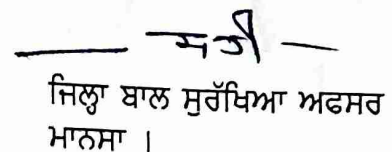 ਸਹੀ
ਜਿਲ੍ਹਾ ਬਾਲ ਸੁਰੱਖਿਆ ਅਫਸਰ
ਮਾਨਸਾ ।